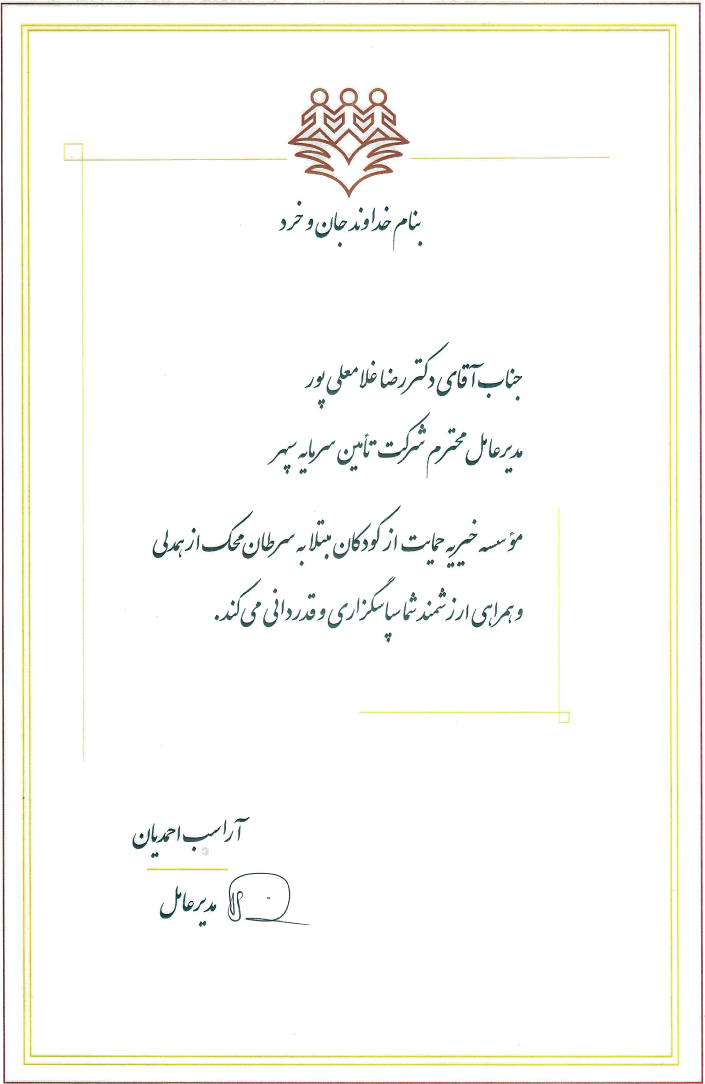 بنام خداوند جان و خرد
جناب آقای دکتر رضا غلامعلی پور
مدیرعامل محترم شرکت تأمین سرمایه سپهر
مؤسسه خیریه حمایت از کودکان مبتلا به سرطان محک از همدلی
و همراهی ارزشمند شما سپاسگزاری و قدردانی می‌کند.
آراسب احمدیان
مدیرعامل